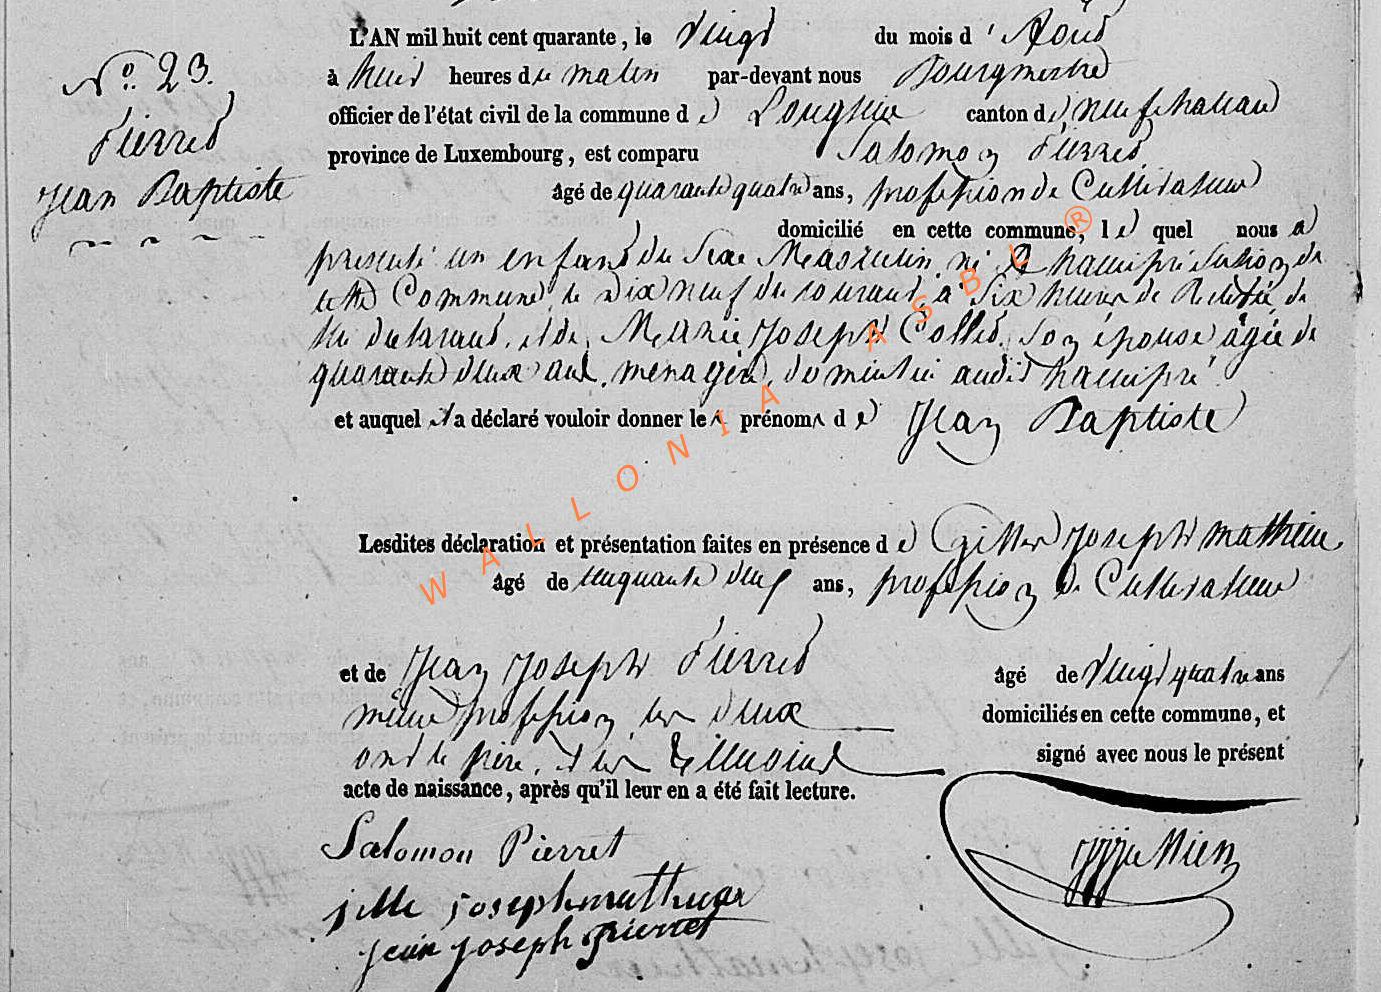 L'AN mil huit cent quarante, le Vingt du mois d' Aout
N.º 23.
à huit heures du matin par-devant nous Bourgmestre
officier de l'état civil de la commune de Longlier canton de neufchateau
Pierret
province de Luxembourg, est comparu Salomon Pierret
Jean Baptiste
âgé de quarante quatre ans, profession de Cultivateur
domicilié en cette commune, le quel nous a
presenté un enfant du Sexe Masculin né à hamipré Section de
cette Commune le dix neuf du courant à Six heures de Relevée de
lui declarant, et de Marie Joseph Collet Son épouse âgée de
quarante deux ans, menagère, domiciliée audit hamipré
et auquel il a déclaré vouloir donner les prénoms de Jean Baptiste
Lesdites déclaration et présentation faites en présence de Gilles Joseph mathieu
âgé de cinquante neuf ans, profession de Cultivateur
et de Jean Joseph Pierret âgé de Vingt quatre ans
même profession les deux domiciliés en cette commune, et
ont le père, et les témoins signé avec nous le présent
acte de naissance, après qu'il leur en a été fait lecture.
Salomon Pierret
jille josephmathieu
jean joseph pierret
WALLONIA ASBL ®